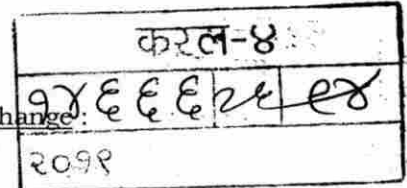 करल-४
hange : १४६६६ ९४
२०१९